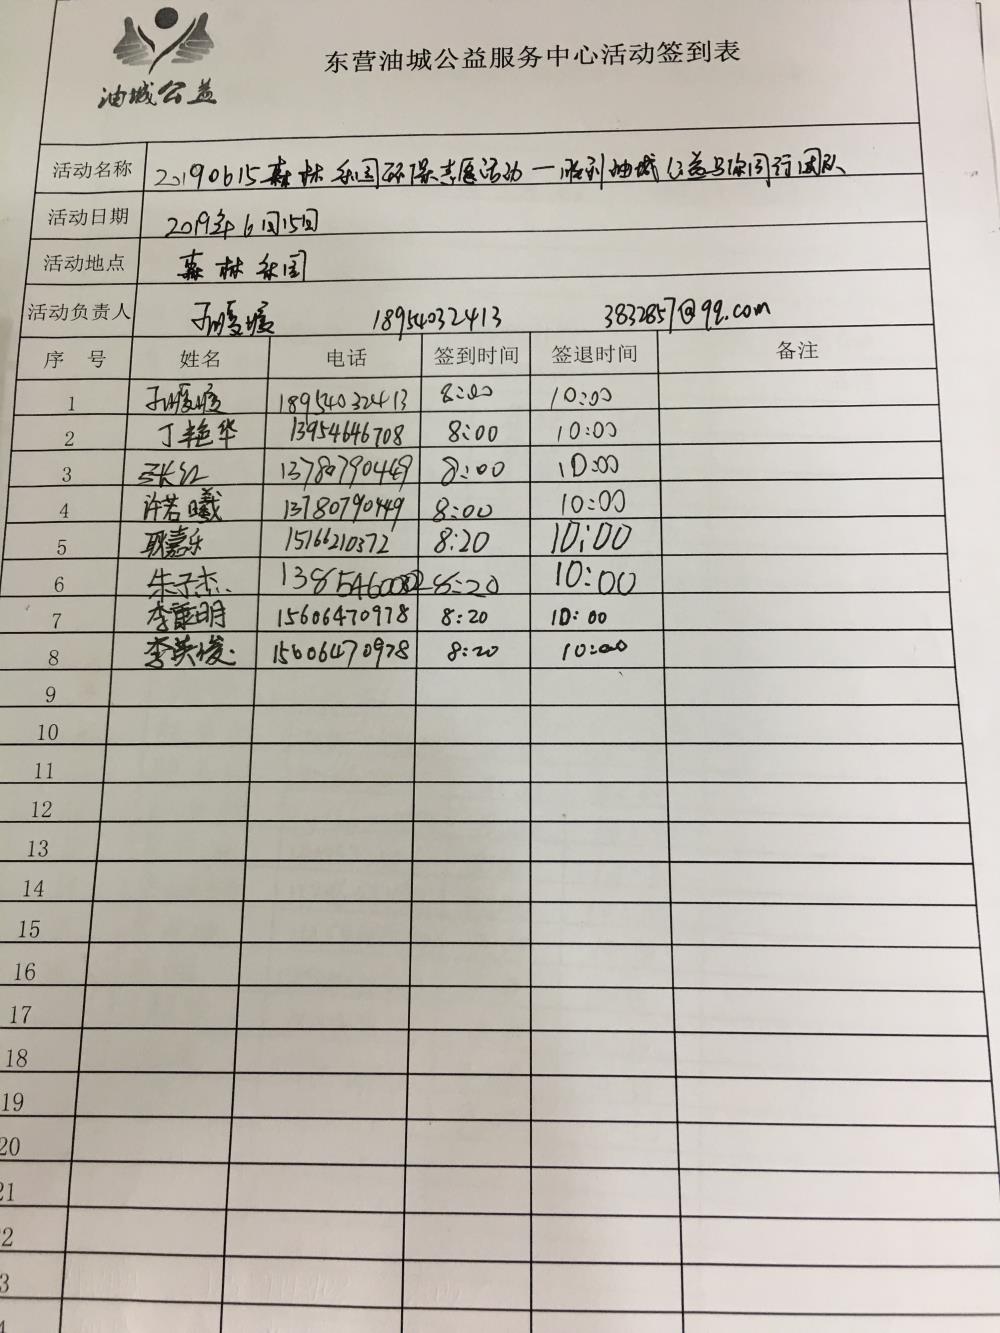 油城公益
东营油城公益服务中心活动签到表
活动名称 20190615森林公园环保志愿活动一胜利油城公益与你同行团队
活动日期 2019年6月15日
活动地点 森林公园
活动负责人 孙暖暖 18954032413 3832857@qq.com
序 号 姓名 电话 签到时间 签退时间 备注
1 孙暖暖 18954032413 8:00 10:00
2 丁艳华 13954646708 8:00 10:00
3 13780790449 8:00 10:00
4 许若曦 13780790449 8:00 10:00
5 耿嘉乐 15166210372 8:20 10:00
6 朱子杰 8:20 10:00
7 李秉明 15606470978 8:20 10:00
8 李英俊 15606470978 8:20 10:00
9
10
11
12
13
14
15
16
17
18
19
20
21
2
3